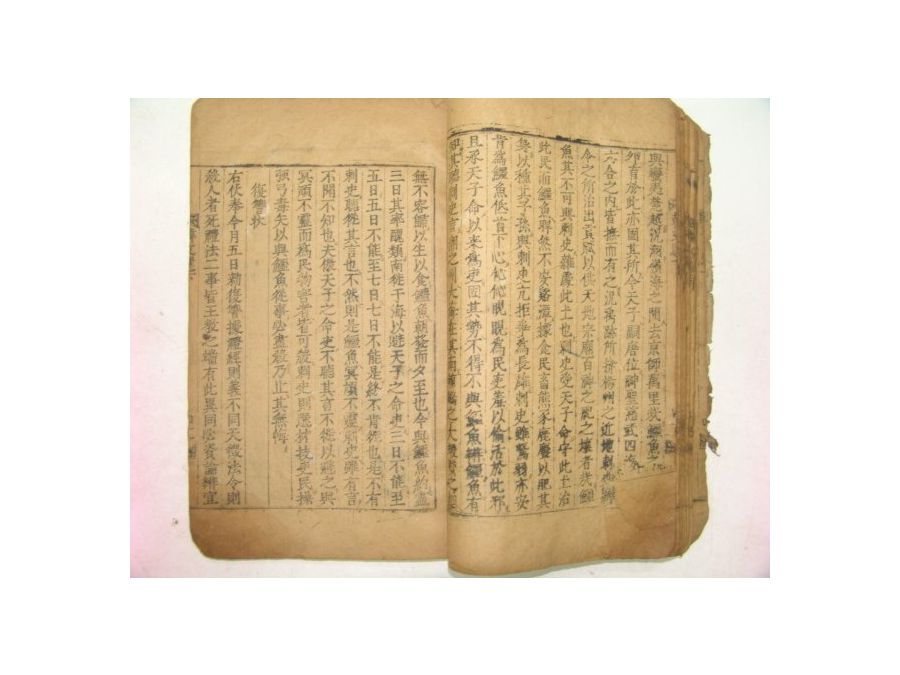 與蠻夷楚越況潮嶺海之間去京師萬里哉鱷魚
卵育於此亦固其所今天子嗣唐位神聖慈武四海
六合之內皆撫而有之況禹跡所揜揚州之近地刺
令之所治出貢賦以供天地宗廟百神之祀之壤者哉鱷
魚其不可與刺史雜處此土也刺史受天子命守此土治
此民而鱷魚睅然不安谿潭據食民畜熊豕鹿麞以肥其
身以種其子孫與刺史亢拒爭爲長雄刺史雖駑弱亦安
肯爲鱷魚低首下心伈伈睍睍爲民吏羞以偷活於此邪
且承天子命以來爲吏固其勢不得不與鱷魚辨鱷魚有
知其聽刺史言潮之州大海在其南之大
無不容歸以生以食鱷魚朝發而夕至也今與鱷魚約盡
三日其率醜類南徙于海以避天子之命吏三日不能至
五日五日不能至七日七日不能是終不肯徙也是不有
刺史聽從其言也不然則是鱷魚冥頑不靈刺史雖有言
不聞不知也夫傲天子之命吏不聽其言不徙以避之與
冥頑不靈而爲民物害者皆可殺刺史則選材技吏民操
強弓毒矢以與鱷魚從事必盡殺乃止其無悔
復讐狀
右伏奉今月五日勑復讐據禮經則義不同天徵法令則
殺人者死禮法二事皆王教之端有此異同必資論辯宜